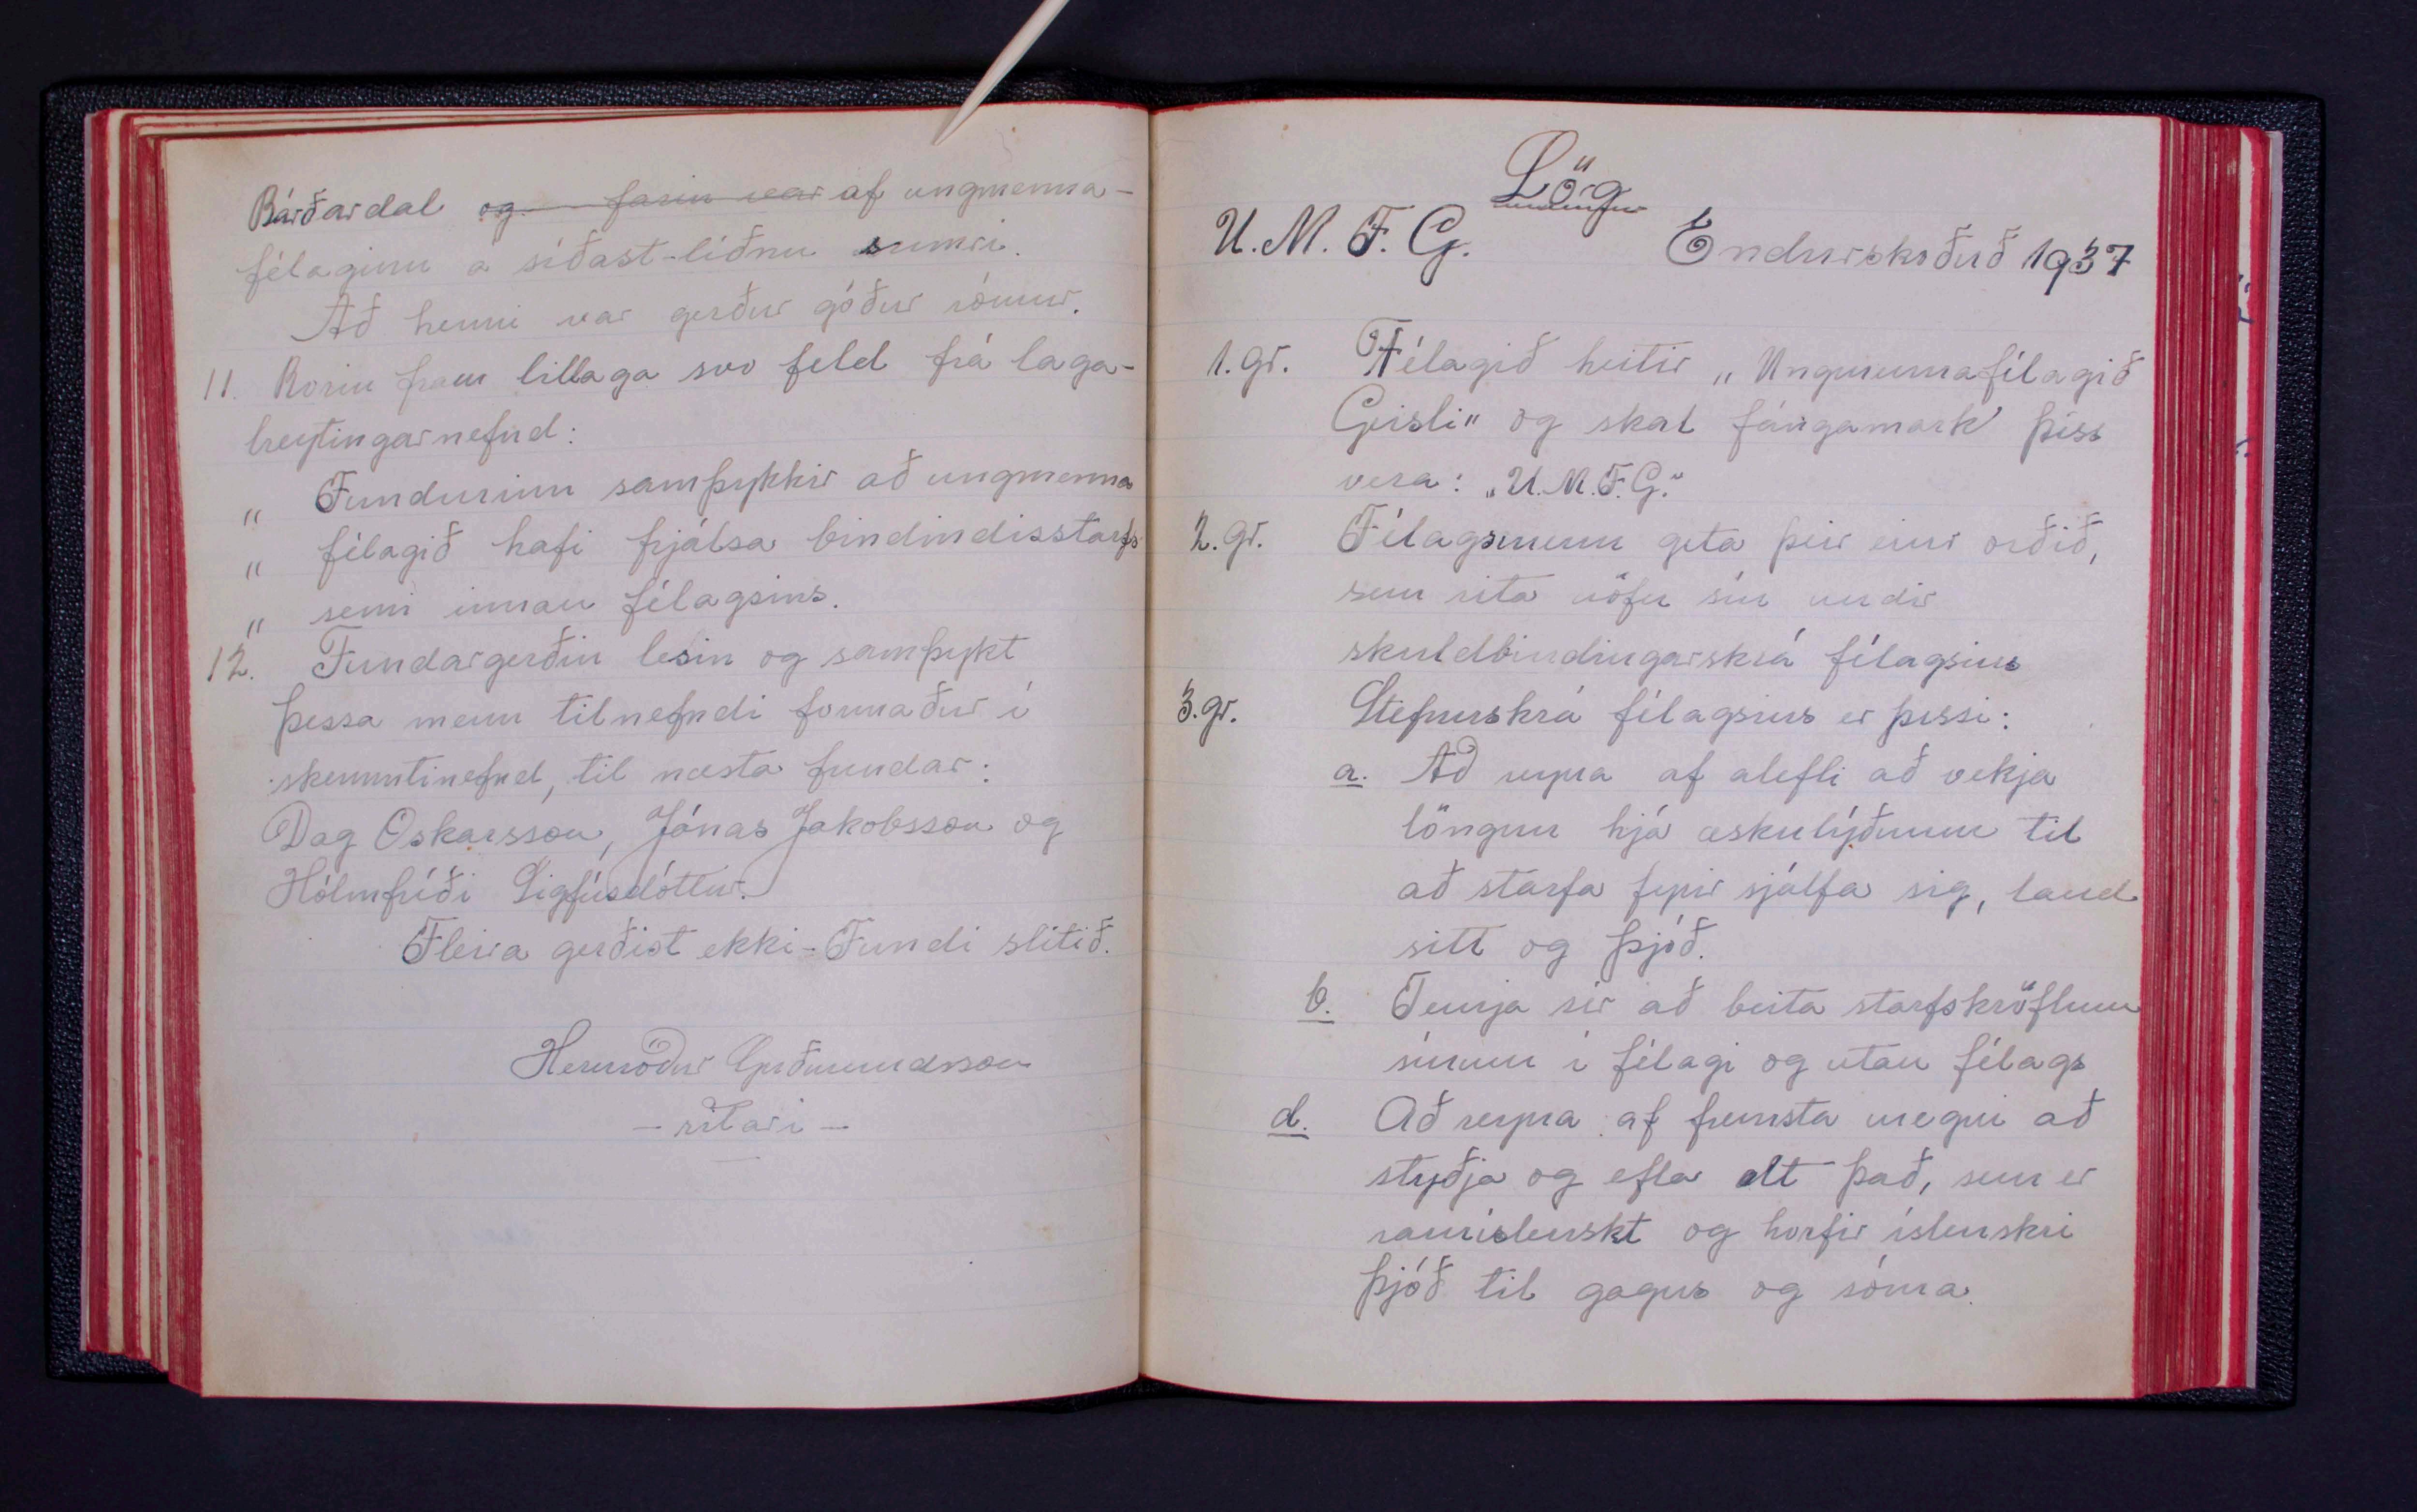 Bárðardal og farin var af ungmenna-
félaginu á síðast-liðnu sumri.
Að henni var gerður góður rómur.
11. Borin fram tillaga svo feld frá laga-
breytingarnefnd:
„ Fundurinn samþykkir að ungmenna
„ félagið hafi frjálsa bindindisstarfs
„ semi innan félagsins.
12. Fundargerðin lesin og samþykt
Þessa menn tilnefndi formaður í
skemmtinefnd, til næsta fundar:
Dag Óskarsson, Jónas Jakobsson og
Hólmfríði Sigfúsdóttur.
Fleira gerðist ekki - Fundi slitið.
Hermóður Guðmundsson
- ritari -
Lög
U.M.F.G. Endurskoðuð 1937
1. gr. Félagið heitir „Ungmennafélagið
Geisli" og skal fángamark þess
vera: „U.M.F.G."
2. gr. Félagsmenn geta þeir einir orðið,
sem rita nöfn sín undir
skuldbindingarskrá félagsins
3. gr. Stefnuskrá félagsins er þessi:
a. Að reyna af alefli að vekja
löngun hjá æskulýðnum til
að starfa fyrir sjálfa sig, land
sitt og þjóð.
b. Temja sér að beita starfskröftum
sínum í félagi og utan félags
d. Að reyna af fremsta megni að
styðja og efla alt það, sem er
ramíslenskt og horfir íslenskri
þjóð til gagns og sóma.